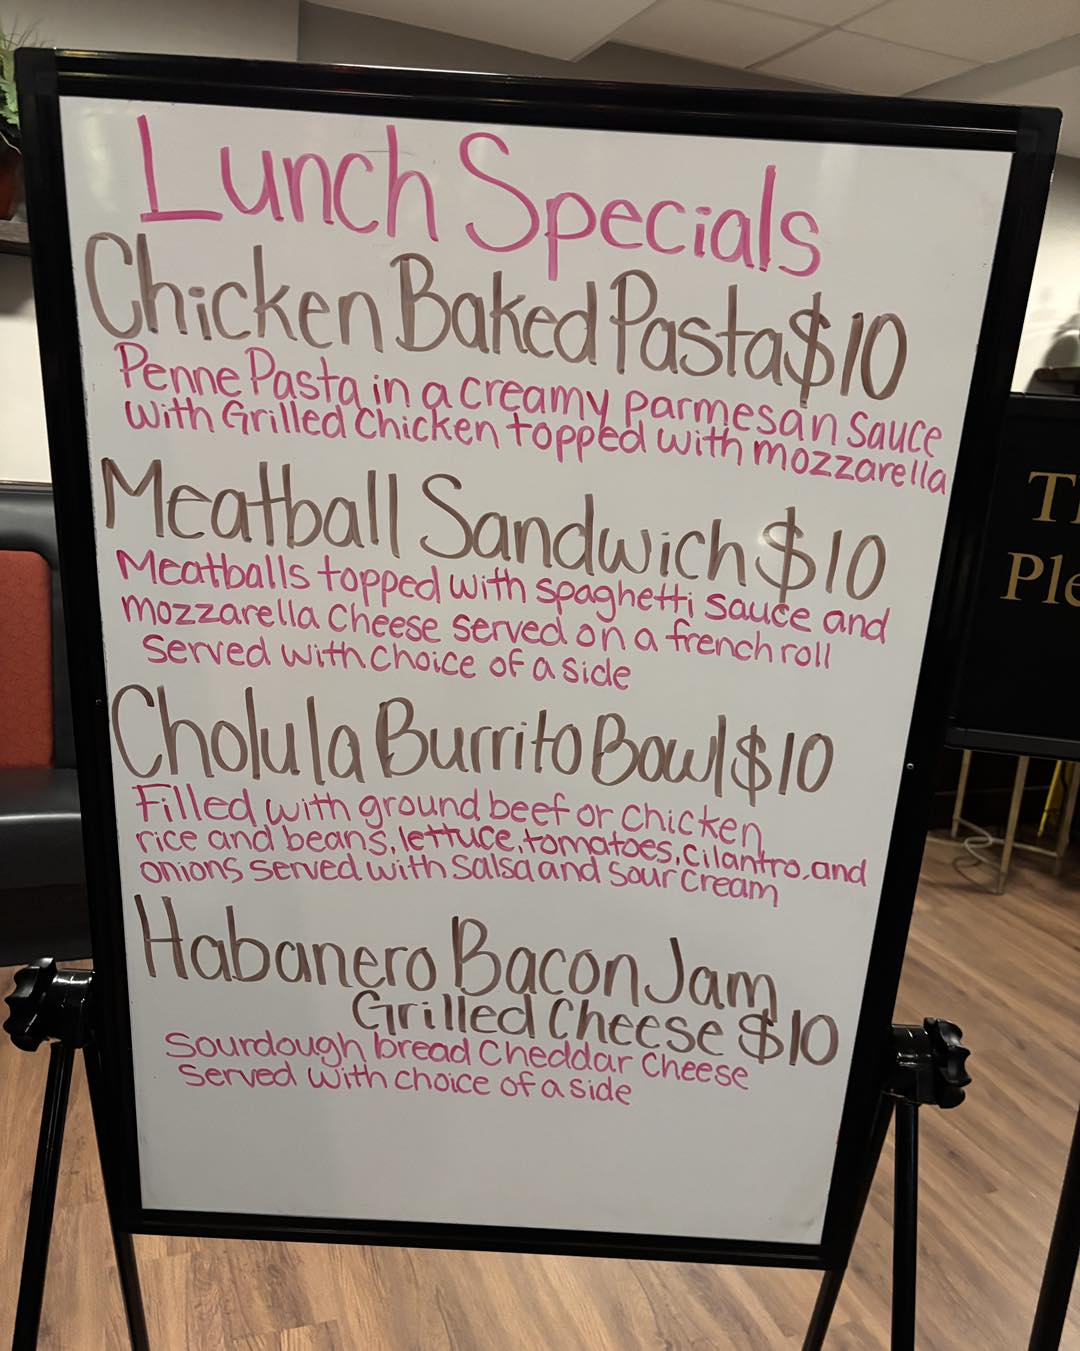 Lunch Specials
Chicken Baked Pasta $10
Penne Pasta in a creamy parmesan sauce
with Grilled Chicken topped with mozzarella
Meatball Sandwich $10
Meatballs topped with spaghetti sauce and
mozzarella cheese served on a french roll
served with choice of a side
Cholula Burrito Bowl $10
Filled with ground beef or chicken,
rice and beans, lettuce, tomatoes, cilantro, and
onions served with salsa and sour cream
Habanero Bacon Jam
Grilled Cheese $10
Sourdough bread Cheddar cheese
served with choice of a side